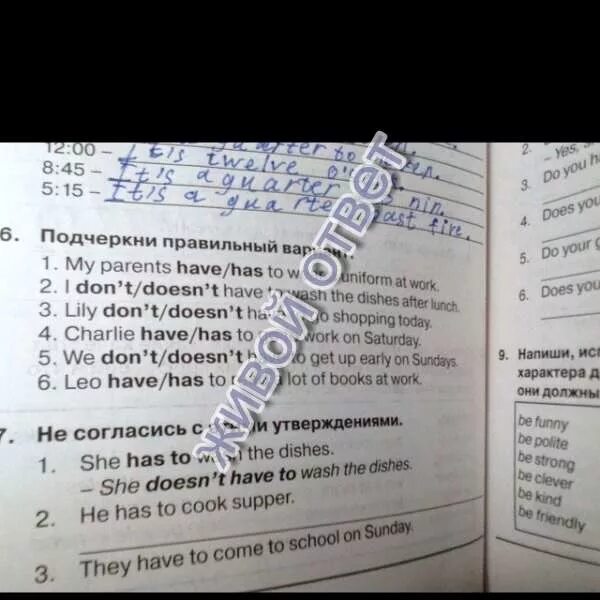 12:00 – It's twelve
8:45 – It's a quarter nin.
5:15 – It's a quarter past five.
6. Подчеркни правильный вариант.
1. My parents have/has to uniform at work.
2. I don't/doesn't have to wash the dishes after lunch.
3. Lily don't/doesn't shopping today.
4. Charlie have/has to work on Saturday.
5. We don't/doesn't to get up early on Sundays.
6. Leo have/has to lot of books at work.
7. Не согласись с утверждениями.
1. She has to wash the dishes.
– She doesn't have to wash the dishes.
2. He has to cook supper.
3. They have to come to school on Sunday.
ЖИВОЙ ОТВЕТ
2.
– Yes,
3. Do you
4. Does you
5. Do your
6. Does you
9. Напиши,
характера
они должны
be funny
be polite
be strong
be clever
be kind
be friendly